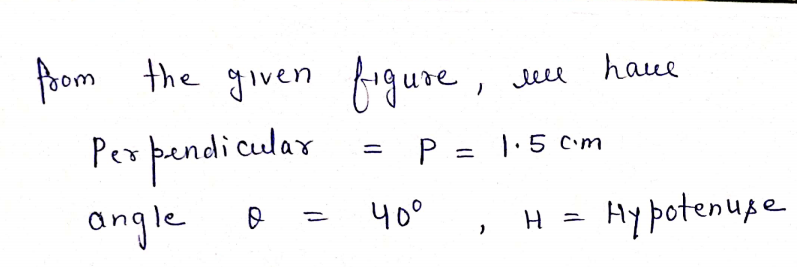 from the given figure, we have
Perpendicular = P = 1.5 cm
angle θ = 40°, H = Hypotenuse